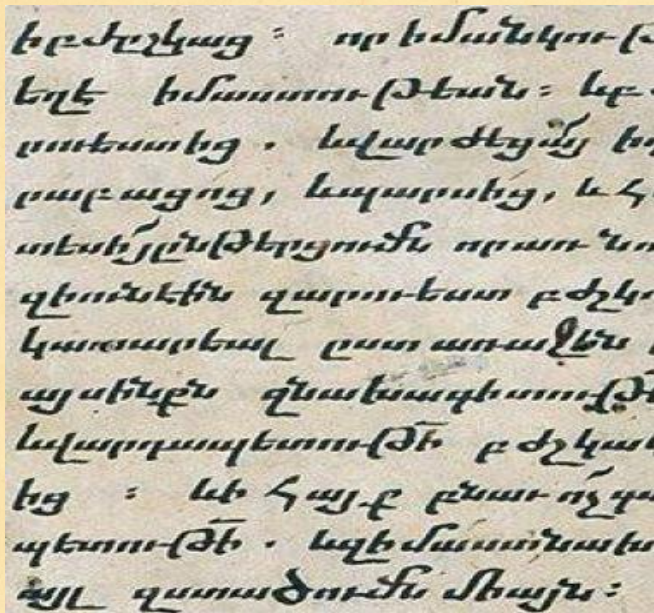 ի բժշկաց ։ որ ի մանկութ
եղէ իմաստութեան։ և բ
րուեստից . և վարժեցայ
րաբացոց, և պարսից, և հ
տեսի յընթերցումն որ առ նո
զի ունէին զարուեստ բժշկ
կատարեալ ըստ առաջին
այսինքն զնախագիտութ
և վարդապետութի բժշկակ
ից ։ և ի հայք բնաւ ոչ
պետութի . և զիմաստ նախ
այլ զստածումն միայն։